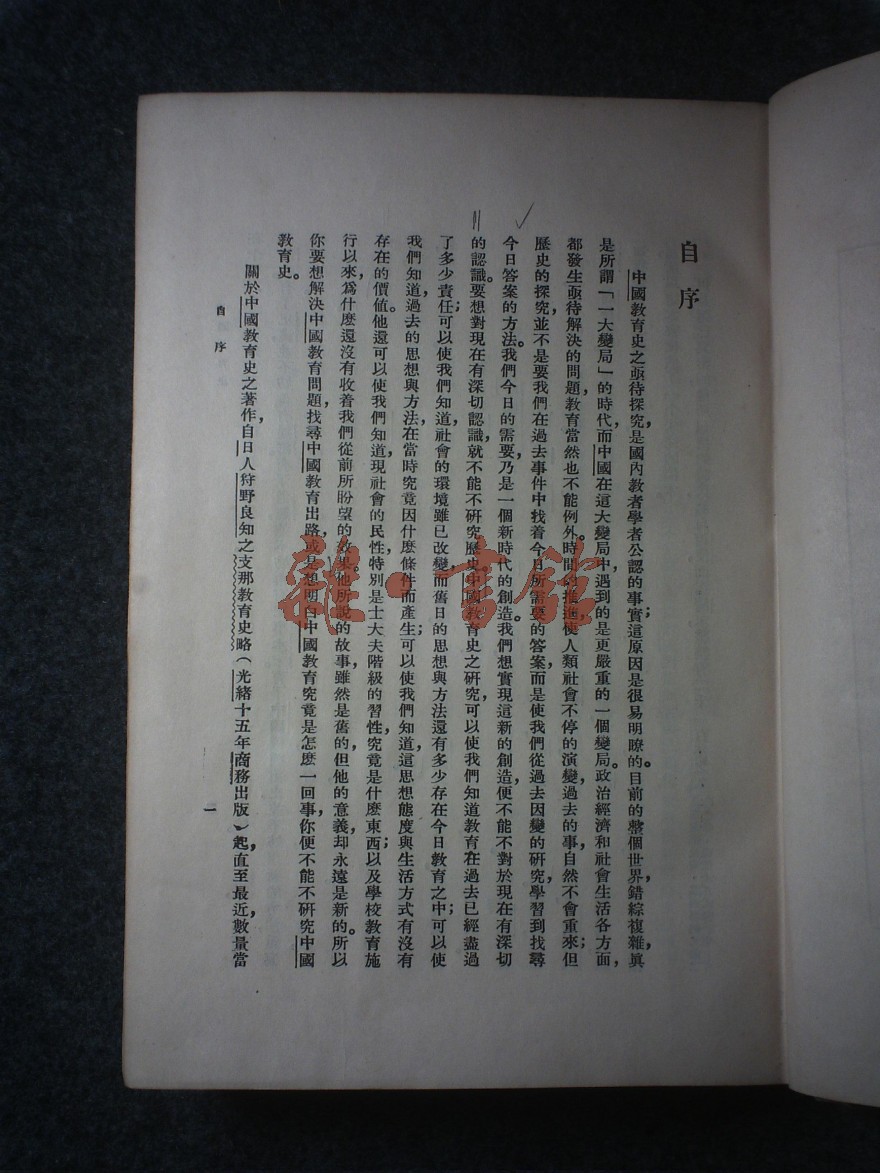 自序
中國教育史之亟待探究，是國內教者學者公認的事實；這原因是很易明瞭的。目前的整個世界，錯綜複雜，眞
是所謂「一大變局」的時代，而中國在這大變局中，遇到的是更嚴重的一個變局。政治經濟和社會生活各方面，
都發生亟待解決的問題，教育當然也不能例外。時間的推進，使人類社會不停的演變，過去的事，自然不會重來；但
歷史的探究，並不是要我們在過去事件中找着今日所需要的答案，而是使我們從過去因變的研究，學習到找尋
今日答案的方法。我們今日的需要，乃是一個新時代的創造。我們想實現這新的創造，便不能不對於現在有深切
的認識；要想對現在有深切認識，就不能不研究歷史。中國教育史之研究，可以使我們知道教育在過去已經盡過
了多少責任；可以使我們知道，社會的環境雖已改變，而舊日的思想與方法還有多少存在今日教育之中；可以使
我們知道，過去的思想與方法，在當時究竟因什麽條件而產生；可以使我們知道，這思想態度與生活方式有沒有
存在的價値。他還可以使我們知道，現社會的民性，特別是士大夫階級的習性，究竟是什麽東西；以及學校教育施
行以來，爲什麽還沒有收着我們從前所盼望的效果。他所說的故事，雖然是舊的，但他的意義，却永遠是新的。所以
你要想解決中國教育問題，找尋中國教育出路，或是想明白中國教育究竟是怎麽一回事，你便不能不研究中國
教育史。
關於中國教育史之著作，自日人狩野良知之支那教育史略（光緒十五年商務出版）起，直至最近，數量當
自序
一
雜·書館